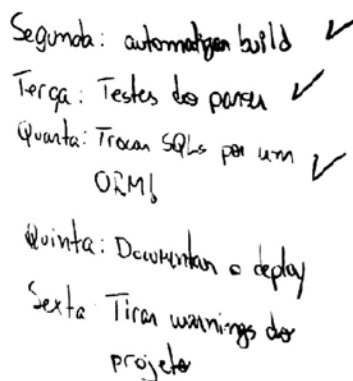 Segunda: automatizar build ✓
Terça: Testes do parser ✓
Quarta: Trocar SQLs por um
ORM! ✓
Quinta: Documentar o deploy
Sexta: Tirar warnings do
projeto